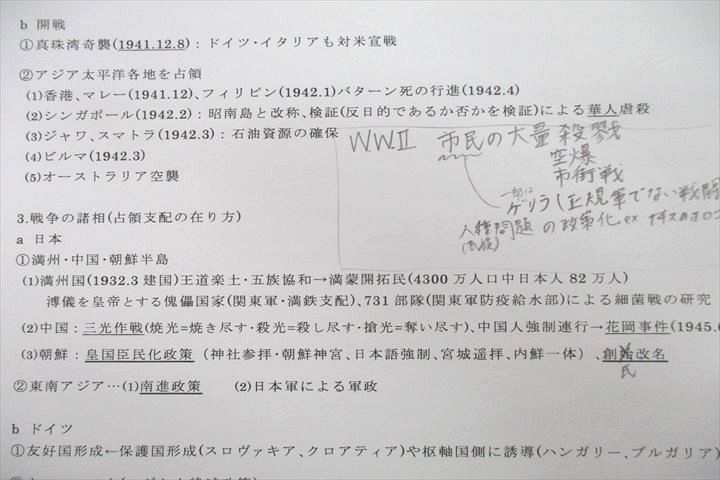 b 開戦
①真珠湾奇襲(1941.12.8)：ドイツ・イタリアも対米宣戦
②アジア太平洋各地を占領
(1)香港、マレー(1941.12)、フィリピン(1942.1)バターン死の行進(1942.4)
(2)シンガポール(1942.2)：昭南島と改称、検証(反日的であるか否かを検証)による華人虐殺
(3)ジャワ、スマトラ(1942.3)：石油資源の確保
(4)ビルマ(1942.3)
(5)オーストラリア空襲
WWⅡ 市民の大量殺戮
空爆
市街戦
一部は
ゲリラ(正規軍でない戦闘
人種問題の政策化 ex ナチスのホロコ
(民族)
3.戦争の諸相(占領支配の在り方)
a 日本
①満州・中国・朝鮮半島
(1)満州国(1932.3建国)王道楽土・五族協和→満蒙開拓民(4300万人口中日本人82万人)
溥儀を皇帝とする傀儡国家(関東軍・満鉄支配)、731部隊(関東軍防疫給水部)による細菌戦の研究
(2)中国：三光作戦(焼光=焼き尽す・殺光=殺し尽す・搶光=奪い尽す)、中国人強制連行→花岡事件(1945.6
(3)朝鮮：皇国臣民化政策（神社参拝・朝鮮神宮、日本語強制、宮城遥拝、内鮮一体）、創始改名
氏
②東南アジア…(1)南進政策 (2)日本軍による軍政
b ドイツ
①友好国形成←保護国形成(スロヴァキア、クロアティア)や枢軸国側に誘導(ハンガリー、ブルガリア)